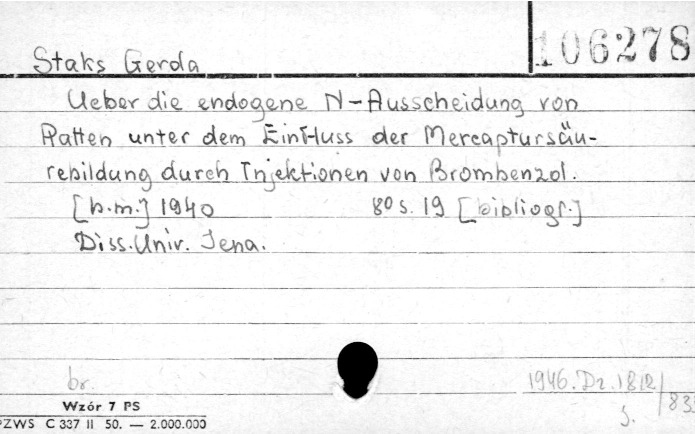 106278
Staks Gerda
Ueber die endogene N-Ausscheidung von
Ratten unter dem Einfluss der Mercaptursäu-
rebildung durch Injektionen von Brombenzol.
[b.m.] 1940 8º s. 19 [bibliogr.]
Diss. Univ. Jena.
br.
1946. Dz. 1812/83
Wzór 7 PS
PZWS C 337 II 50. — 2.000.000